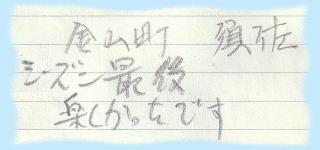 金山町 須佐
シーズン最後
楽しかったです